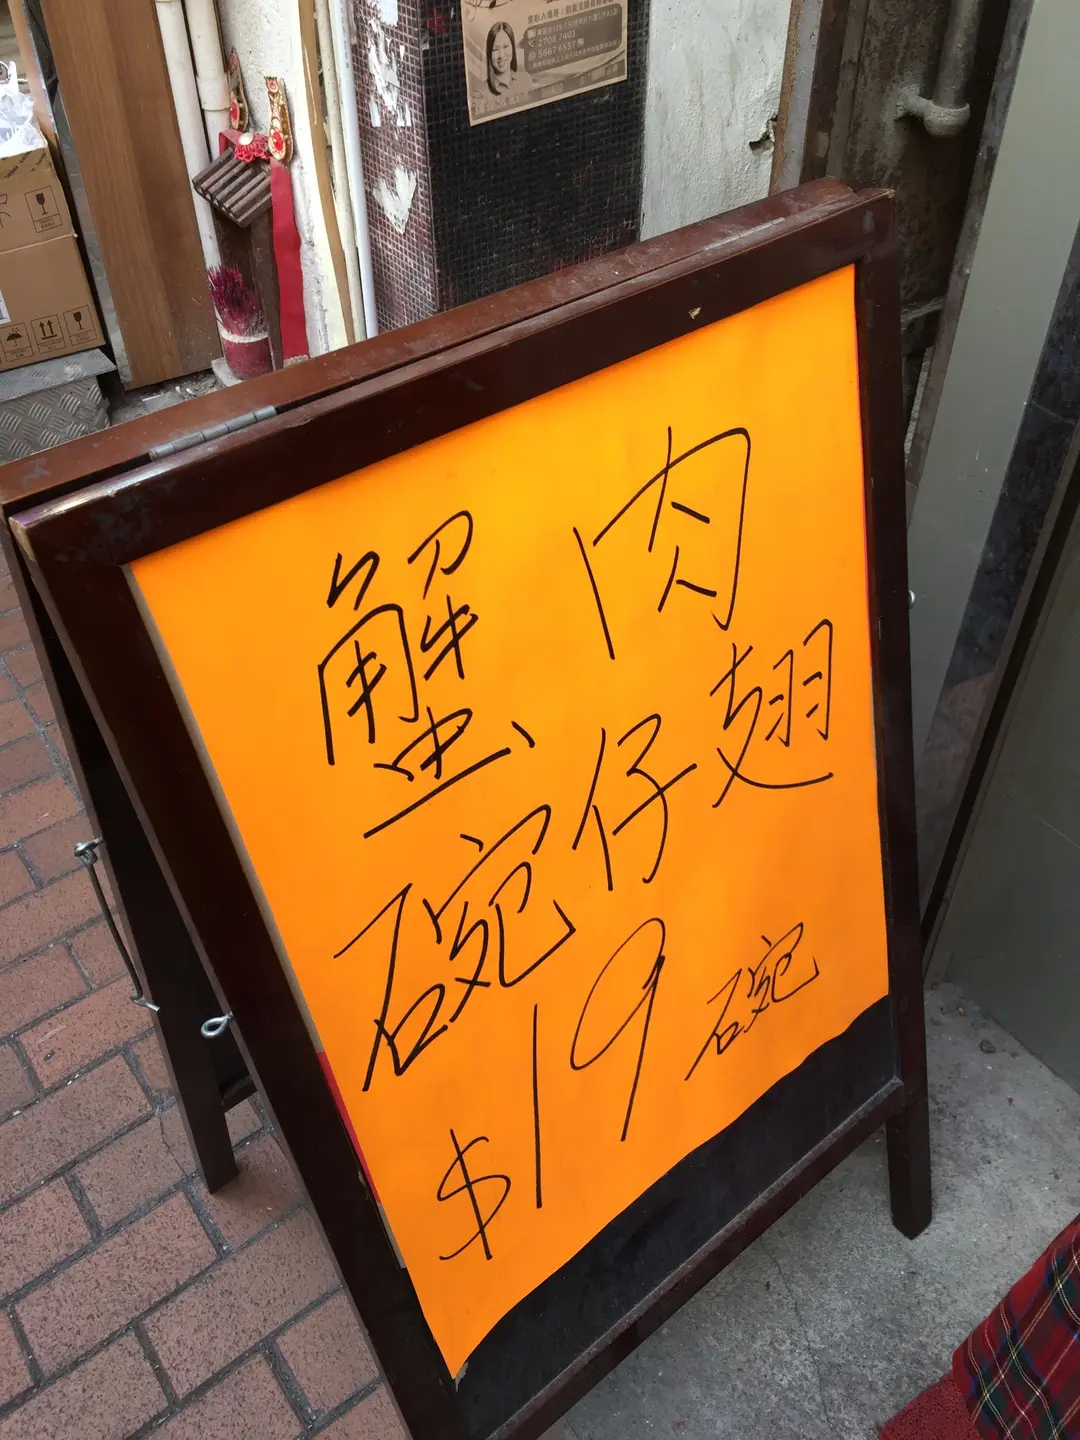 蟹肉
碗仔翅
$19碗
2708 7403
5667 6557